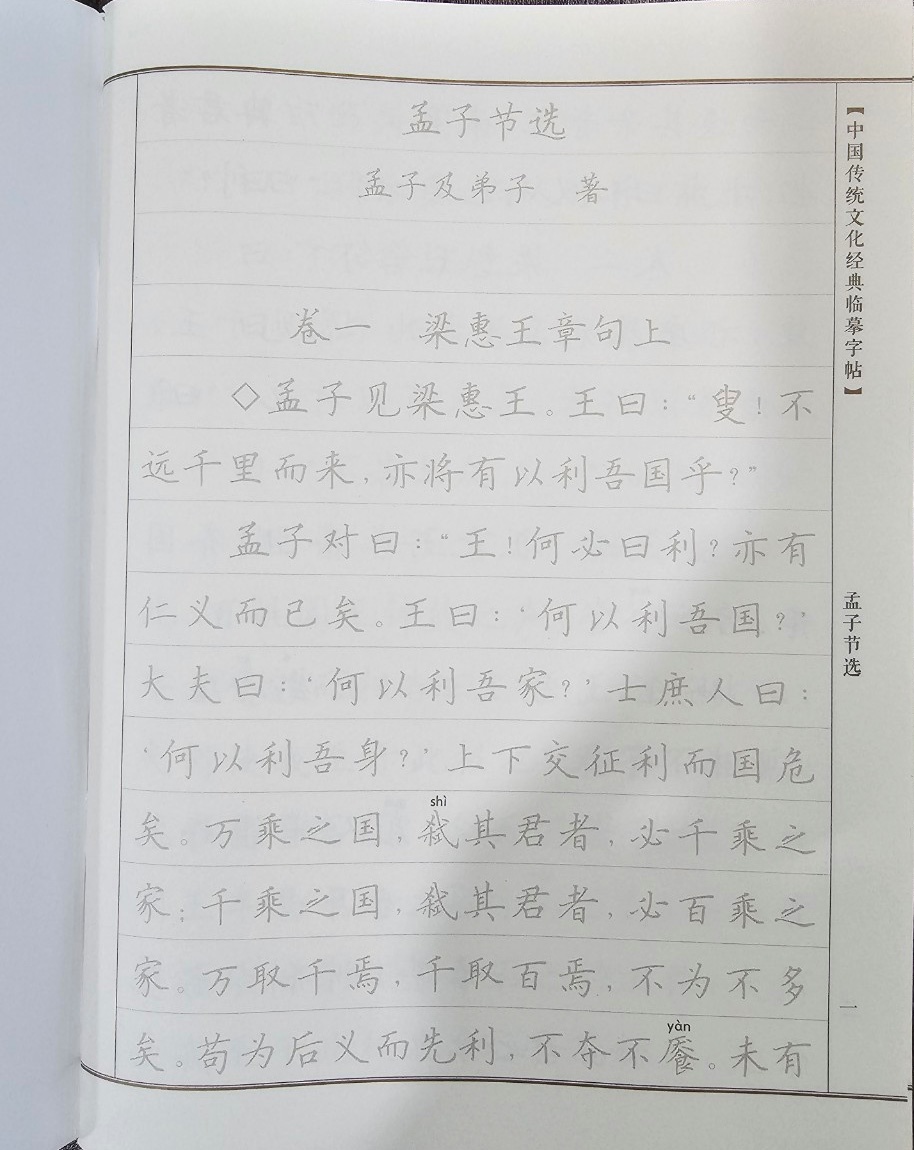 孟子节选
孟子及弟子 著
卷一 梁惠王章句上
◇孟子见梁惠王。王曰：“叟！不
远千里而来，亦将有以利吾国乎？”
孟子对曰：“王！何必曰利？亦有
仁义而已矣。王曰：‘何以利吾国？’
大夫曰：‘何以利吾家？’士庶人曰：
‘何以利吾身？’上下交征利而国危
shì
矣。万乘之国，弑其君者，必千乘之
家；千乘之国，弑其君者，必百乘之
家。万取千焉，千取百焉，不为不多
yàn
矣。苟为后义而先利，不夺不餍。未有
【中国传统文化经典临摹字帖】
孟子节选
一